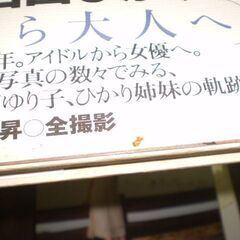 ら大人へ
年。アイドルから女優へ。
写真の数々でみる、
ゆり子、ひかり姉妹の軌跡
昇○全撮影